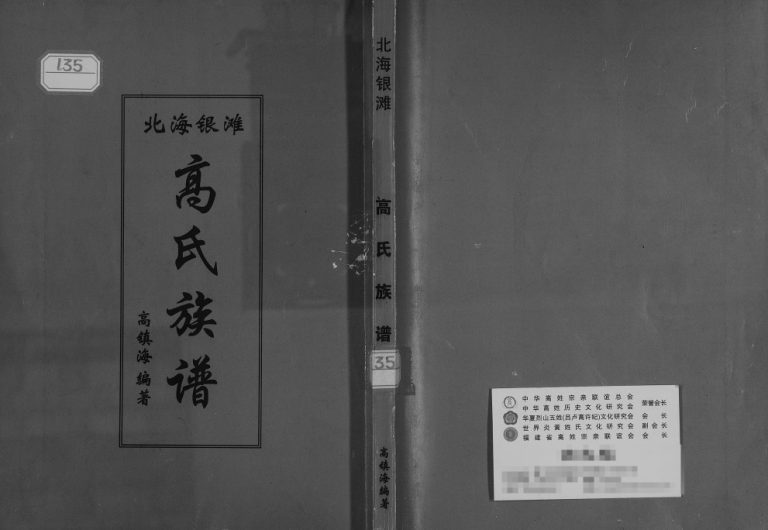 135
北海银滩
高氏族谱
高镇海 编著
北海银滩
高氏族谱
35
高镇海编著
中华高姓宗亲联谊总会
中华高姓历史文化研究会 荣誉会长
华夏烈山五姓(吕卢高许纪)文化研究会 会长
世界炎黄姓氏文化研究会 副会长
福建省高姓宗亲联谊会 会长